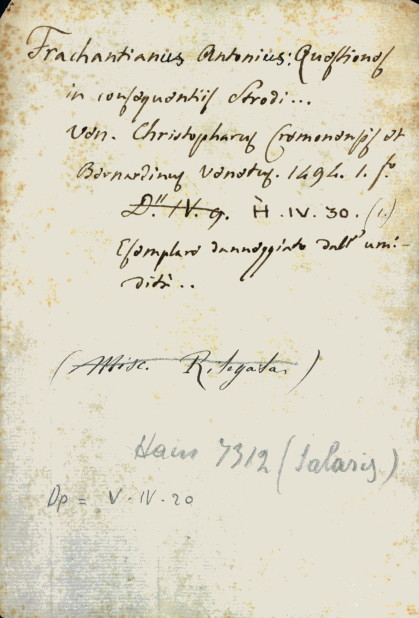 Frachantianus Antonius: Questiones
in consequentiis Strodi...
Ven. Christopharus Cremonensis et
Bernardinus Venetus. 1494. 1. fo.
D.'' IV. 9. H. IV. 30. (1.)
Esemplare danneggiato dall' umi-
dità..
(Misc. Rilegata.)
Hain 7312 (Salaris)
Dp = V. IV. 20